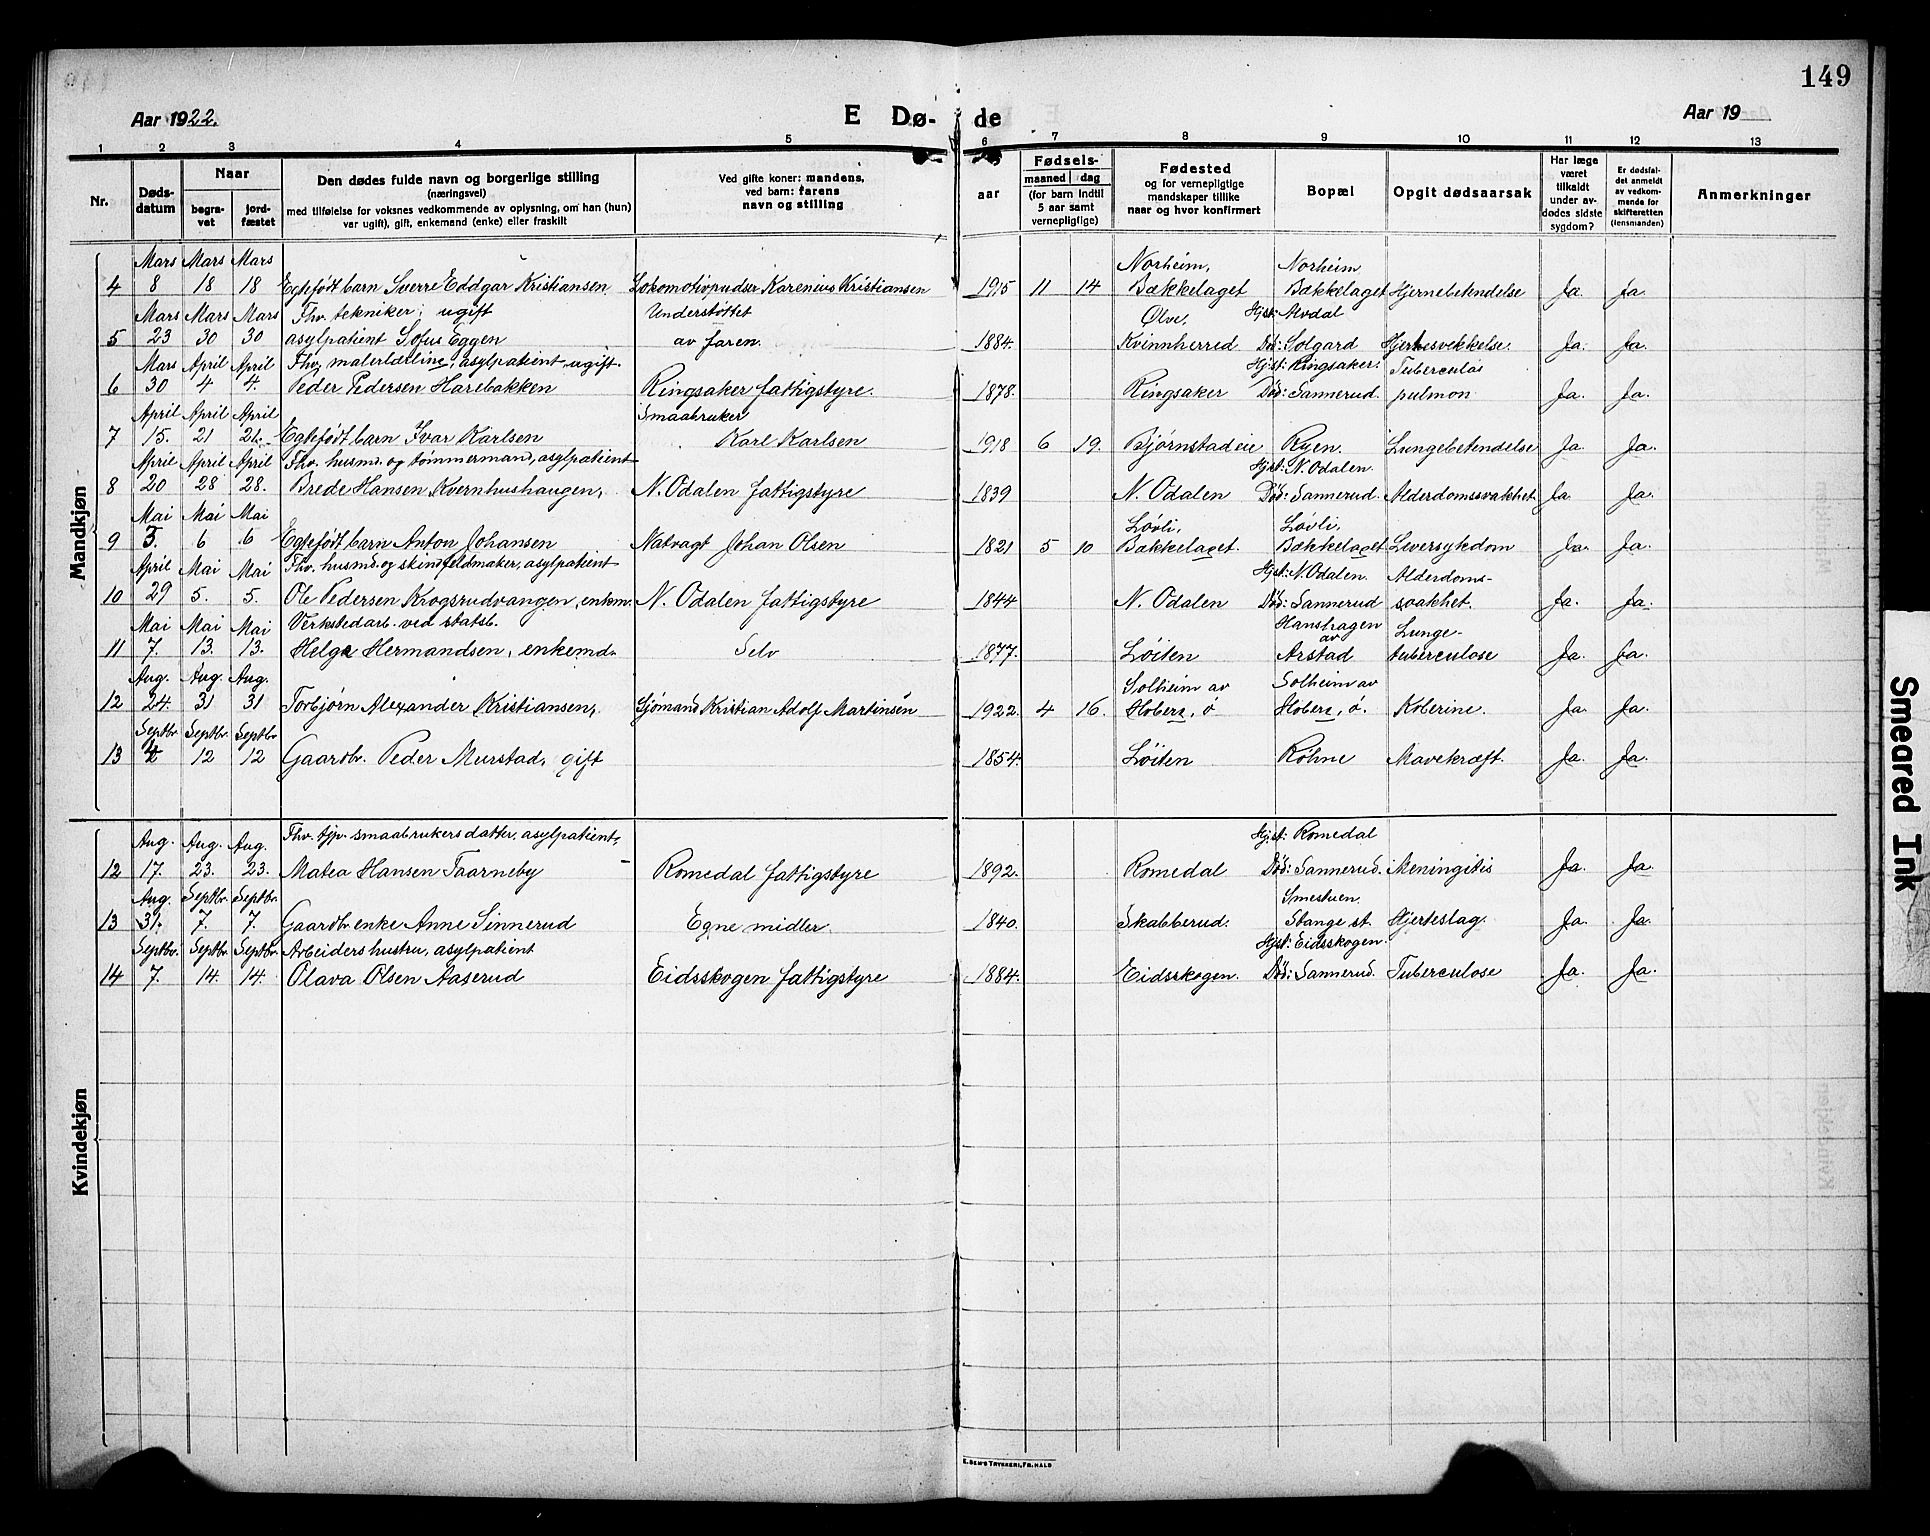 149
Aar 1922.
E Dø- de
Aar 19
1 2 3 4 5 6 7 8 9 10 11 12 13
Nr.
Døds-
datum
Naar
begra-
vet
jord-
fæstet
Den dødes fulde navn og borgerlige stilling
(næringsvei)
med tilføielse for voksnes vedkommende av oplysning, om han (hun)
var ugift), gift, enkemand (enke) eller fraskilt
Ved gifte koner: mandens,
ved barn: farens
navn og stilling
aar
Fødsels-
maaned dag
(for barn indtil
5 aar samt
vernepligtige)
Fødested
og for vernepligtige
mandskaper tillike
naar og hvor konfirmert
Bopæl
Opgit dødsaarsak
Har læge
været
tilkaldt
under av-
dødes sidste
sygdom?
Er dødsfal-
det anmeldt
av vedkom-
mende for
skifteretten
(lensmanden)
Anmerkninger
Mandkjøn
Mars Mars Mars Norheim, Norheim
4 8 18 18 Egtefødt barn Sverre Eddgar Kristiansen Lokomotivpudser Karenius Kristiansen 1915 11 14 Bækkelaget Bækkelaget Hjernebetendelse Ja. Ja.
Mars Mars Mars Fhv. tekniker, ugift Understøttet Ølve, Hjst: Alvdal
5 23 30 30 asylpatient Sofus Eggen av faren. 1884. Kvinnherred Død: Solgard Hjertesvekkelse. Ja. Ja.
Mars April April Fhv. malerlærling, asylpatient, ugift. Hjst: Ringsaker. Tuberculos
6 30 4 4. Peder Pedersen Harebakken Ringsaker fattigstyre. 1878. Ringsaker Død: Sannerud. pulmon. Ja. Ja.
April April April Smaabruker
7 15. 21 21. Egtefødt barn Ivar Karlsen Karl Karlsen 1918 6 19. Bjørnstadeie Ryen. Lungebetendelse Ja. Ja.
April April April Fhv. husmd. og tømmermand, asylpatient Hjst: N. Odalen.
8 20 28 28. Brede Hansen Kvernhushaugen, N. Odalen fattigstyre 1839 N. Odalen Død: Sannerud Alderdomssvakhet Ja. Ja.
Mai Mai Mai Løvli, Løvli,
9 3. 6 6 Egtefødt barn Anton Johansen Natvagt Johan Olsen 1821 5 10 Bækkelaget. Bækkelaget Leversykdom Ja. Ja.
April Mai Mai Fhv. husmd. og skindfeldmaker, asylpatient Hjst: N. Odalen. Alderdoms-
10 29 5. 5. Ole Pedersen Krogsrudvangen, enkm. N. Odalen fattigstyre 1844 N. Odalen Død: Sannerud svakhet. Ja. Ja.
Mai Mai Mai Verkstedarb. ved statsb. Hanshagen av Lunge-
11 7. 13. 13. Helge Hermandsen, enkemd. Selv 1877. Løiten Arstad tuberculose Ja. Ja.
Aug. Aug. Aug. Solheim av Solheim av
12 24. 31 31 Torbjørn Alexander Kristiansen, Sjømand Kristian Adolf Martinsen 1922. 4 16. Hoberg, ø Hoberg, ø. Kolerine. Ja. Ja.
Septbr. Septbr. Septbr.
13 4 12 12 Gaardbr. Peder Murstad, gift 1854. Løiten Røhne Mavekræft. Ja. Ja.
Kvindekjøn
Aug. Aug. Aug. Fhv. tjp. smaabrukers datter, asylpatient, Hjst: Romedal
12 17. 23. 23. Matea Hansen Taarneby Romedal fattigstyre 1892. Romedal Død: Sannerud. Meningitis Ja. Ja.
Aug. Septbr. Septbr. Smestuen
13 31. 7. 7. Gaardbr enke Anne Sinnerud Egne midler. 1840. Skabberud. Stange st. Hjerteslag. Ja. Ja.
Septbr. Septbr. Septbr. Arbeiders hustru, asylpatient Hjst: Eidsskogen.
14 7. 14. 14. Olava Olsen Aaserud Eidsskogen fattigstyre 1884. Eidsskogen. Død: Sannerud. Tuberculose Ja. Ja.
E. SEM'S TRYKKERI, FR.HALD
Smeared Ink